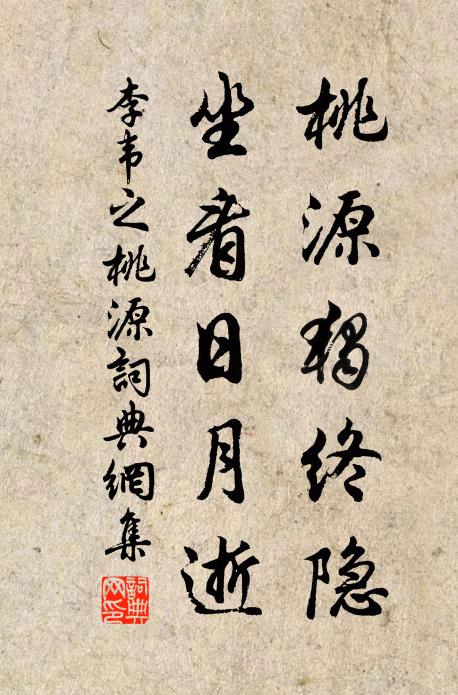 桃源獨终隐
坐看日月逝
李韦之桃源詞典網集
詞典网印